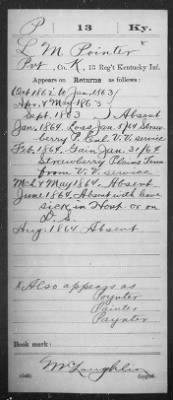 P 13 Ky.
L M Pointer
Pvt, Co. K, 13 Reg't Kentucky Inf.
Appears on Returns as follows:
Oct 1861 to Jan. 1863
Apr. & May 1863
Sept. 1863 Absent
Jan. 1864. Loss Jan. 8/64 Straw-
berry P. Enl. V.V. service
Feb. 1864. Gain Jan. 31/64
Strawberry Plains Tenn
from V.V. service
Mch & May 1864. Absent
June 1864. Absent with leave
sick in Hosp or on
D.S.
Aug. 1864 Absent
x Also appears as
Poynter
Painter
Paynter
Book mark:
McLaughlin
Copyist.